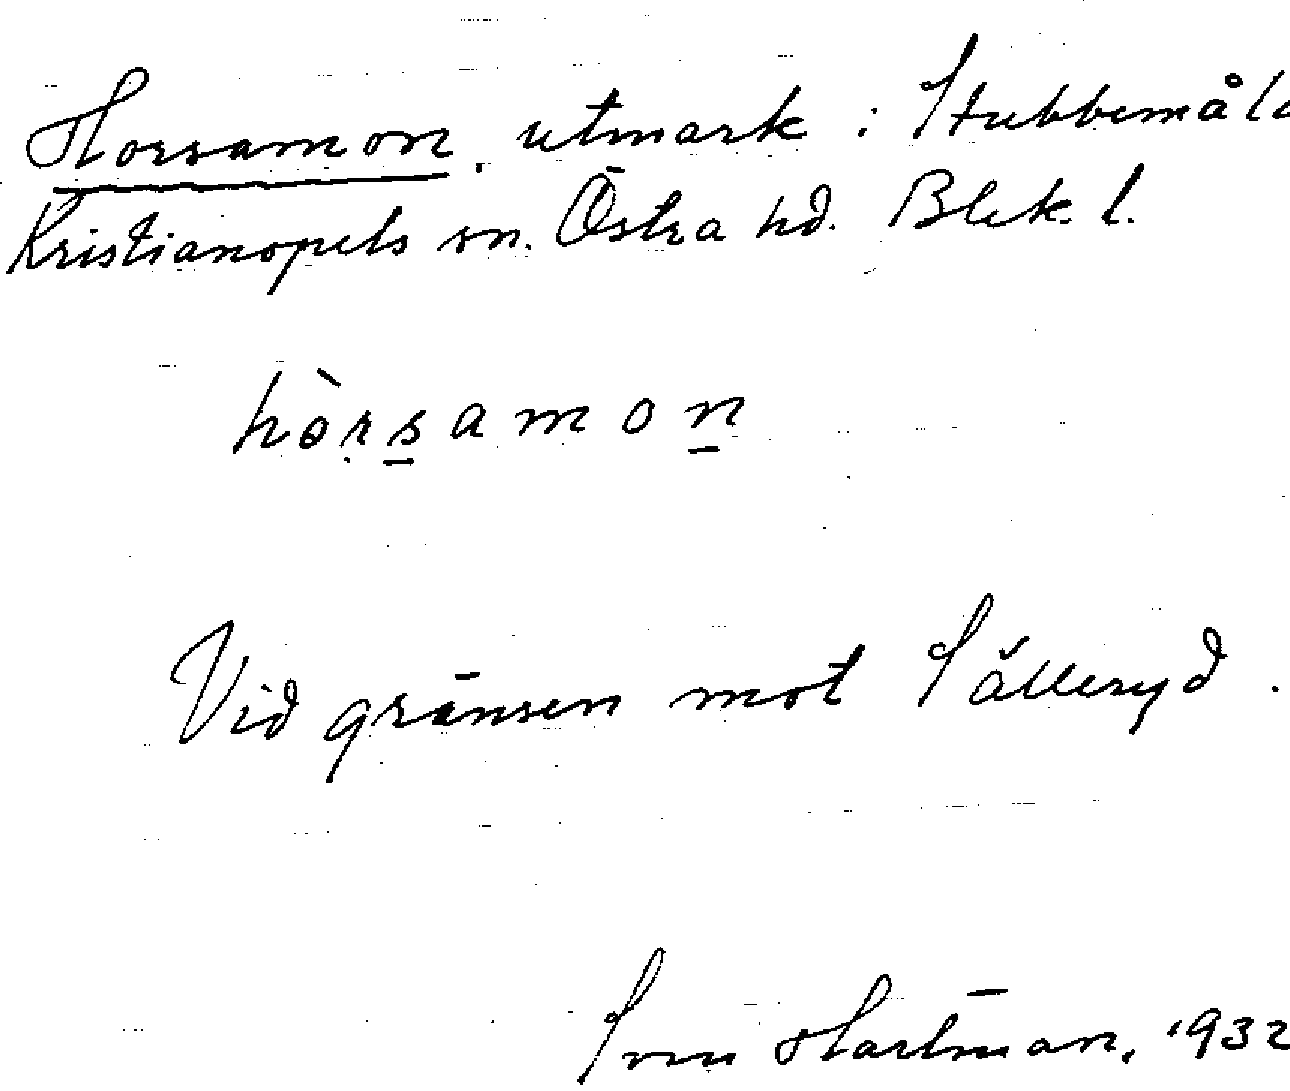 Horsamon, utmark i Stubbemåla
Kristianopels sn. Östra hd. Blek. l.
hòrsamon
Vid gränsen mot Sålleryd.
Sven Hartman, 1932